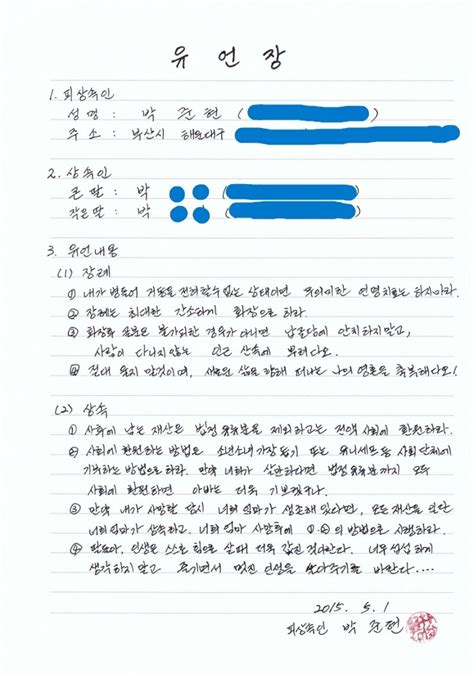 유 언 장
1. 피상속인
성 명 : 박 준 현 ( )
주 소 : 부산시 해운대구
2. 상속인
큰 딸 : 박 ( )
작은 딸 : 박 ( )
3. 유언내용
(1) 장례
① 내가 병들어 거동을 전혀 할 수 없는 상태이면 무의미한 연명치료는 하지마라.
② 장례는 최대한 간소하게 화장으로 하라.
③ 화장후 유골은 불가피한 경우가 아니면 납골당에 안치하지 말고,
사람이 다니지 않는 인근 산속에 뿌려다오.
④ 절대 울지 말것이며, 새로운 삶을 향해 떠나는 나의 영혼을 축복해다오!
(2) 상속
① 사후에 남는 재산은 법정 유류분을 제외하고는 전액 사회에 환원하라.
② 사회에 환원하는 방법은 소년소녀 가장 돕기 또는 유니세프 등 사회단체에
기부하는 방법으로 하라. 만약 너희가 상관하다면 법정 유류분까지 모두
사회에 환원하면 아빠는 더욱 기쁘겠구나.
③ 만약 내가 사망할 당시 너희 엄마가 생존해 있다면, 모든 재산을 일단
너희 엄마가 상속하고, 너희 엄마 사망후에 ①·②의 방법으로 시행하라.
④ 딸들아, 인생은 스스로 힘으로 살때 더욱 값진 것이란다. 너무 섭섭하게
생각하지 말고 즐기면서 멋진 인생을 살아주기를 바란다....
2015. 5. 1
피상속인 박 준 현